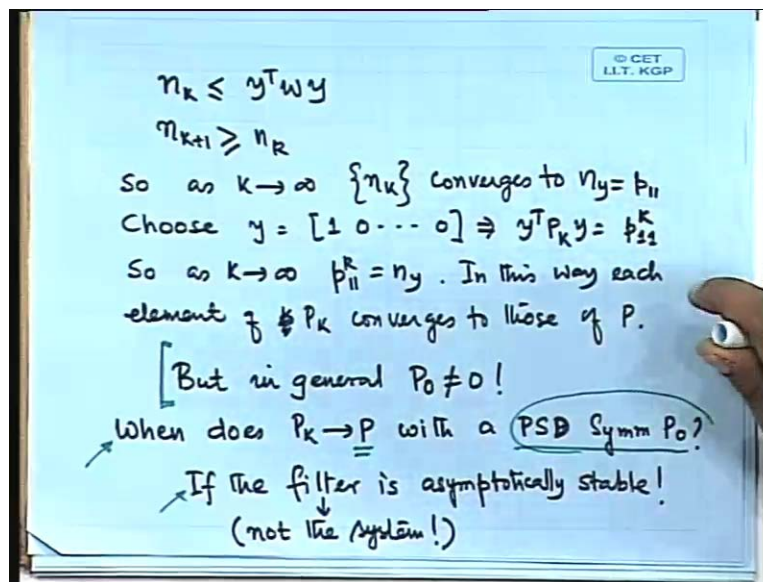 © CET
I.I.T. KGP
n_K ≤ y^T w y
n_{K+1} ≥ n_K
So as K → ∞ {n_K} converges to n_y = p_11
Choose y = [1 0 ··· 0] ⇒ y^T P_K y = p_11^K
So as K → ∞ p_11^K = n_y. In this way each
element of P_K converges to those of P.
[But in general P_0 ≠ 0!
When does P_K → P with a PSD Symm P_0?
If the filter is asymptotically stable!
↓
(not the system!)